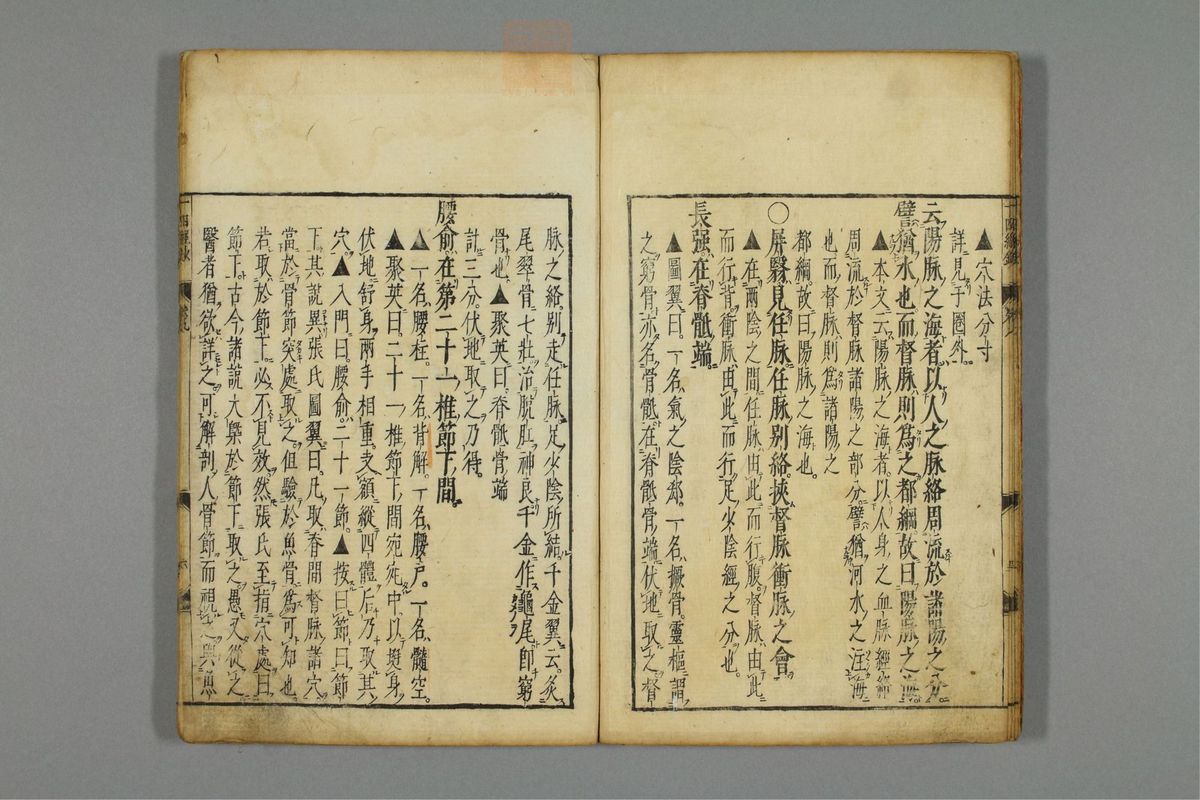 ▲穴法分寸
詳見于圏外
云陽脉之海者以人之脉絡周流於諸陽之分
譬猶水也而督脉則爲之都綱故曰陽脉之海
▲本文云陽脉之海者以人身之血脉經絡
周流於督脉諸陽之部分譬猶河水之注海
也而督脉則爲諸陽之
都綱故曰陽脉之海也
〇屏翳見任脉任脉別絡挾督脉衝脉之會
▲在兩陰之間任脉由此而行腹督脉由此
而行背衝脉由此而行足少陰經之分也
長强在脊骶端
▲圖翼曰一名氣之陰郄一名橛骨靈樞謂
之窮骨亦名骨骶在脊骶骨端伏地取之督
脉之絡別走任脉足少陰所結千金翼云灸
尾翠骨七壯治脱肛神良千金作龜尾即窮
骨也▲聚英曰脊骶骨端
計三分伏地取之乃得
腰俞在第二十一椎節下間
▲一名腰柱一名背解一名腰戸一名髓空
▲聚英曰二十一椎節下間宛宛中以挺身
伏地舒身兩手相重支額縱四體后乃取其
穴▲入門曰腰俞二十一節▲按曰節曰節
下其説異張氏圖翼曰凡取脊間督脉諸穴
當於骨節突處取之但驗於魚骨爲可知也
若取於節下必不見效然張氏至指穴處曰
節下古今諸説大槩於節下取之愚又從之
醫者猶欲詳之可解剖人骨節而視之與魚